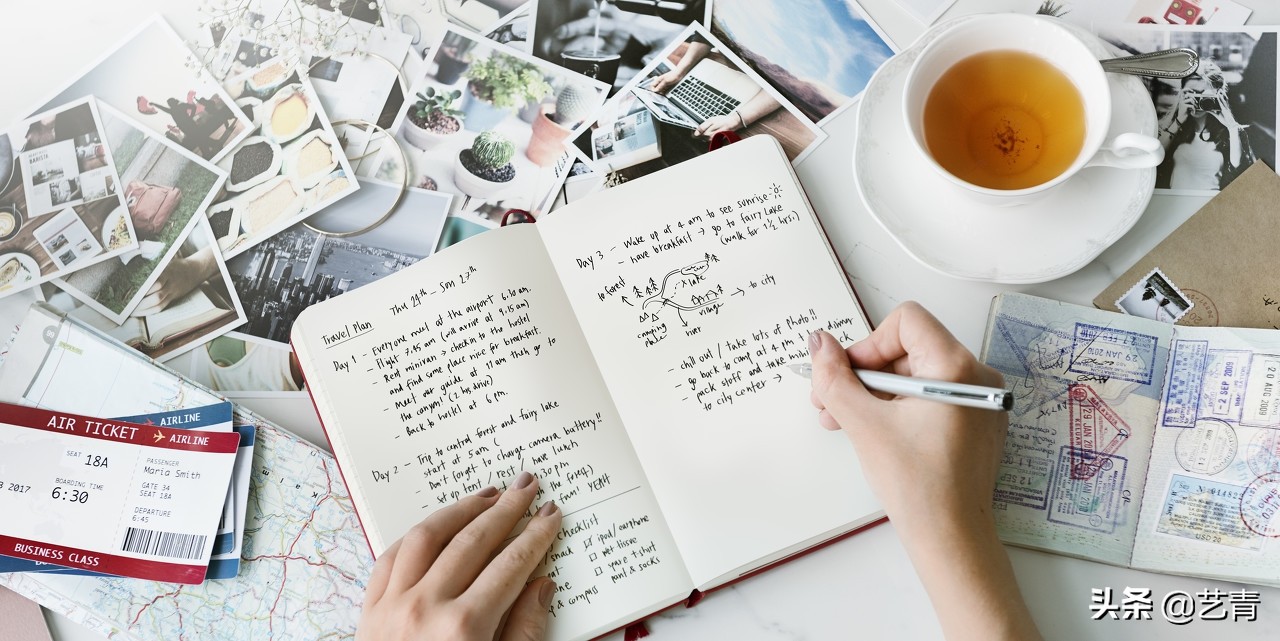 Travel Plan
Thu 24th - Sun 27th
Day 1 - Everyone meet at the airport 6.10 am.
- Flight 7.45 am (will arrive at 9.15 am)
- Rent minivan → check in to the hostel
and find some place nice for breakfast.
- Meet our guide at 11 am then go to
the canyon (2 hrs drive)
- Back to hostel at 6 pm.
Day 2 - Trip to central forest and fairy lake
start at 5 am
- Don't forget to change camera battery!!
- set up tent / rest / have lunch
.30 pm
the forest)
from! YEAH
checklist
snack
ipod / earphone
wet tissue
spare t-shirt
pant & socks
& compass
Day 3 - Wake up at 4 am to see sunrise
- have breakfast → go to fairy lake
(walk for 1 1/2 hrs.)
to forest
to city
camping
place
river
village
- chill out / take lots of photo!!
- go back to camp at 4 pm
- pack stuff and take
to city center →
AIR TICKET
AIRLINE
AIRLINE
SEAT
18A
PASSENGER
Maria Smith
2017
BOARDING TIME
6:30
GATE 34
SEAT 18A
DEPARTURE
6:45
BUSINESS CLASS
BARISTA
29 JAN 2016
29 JAN 2016
KELUAR
12 SEP
- 2 SEP 2009
20 AUG 2009
USD 20
头条 @艺青